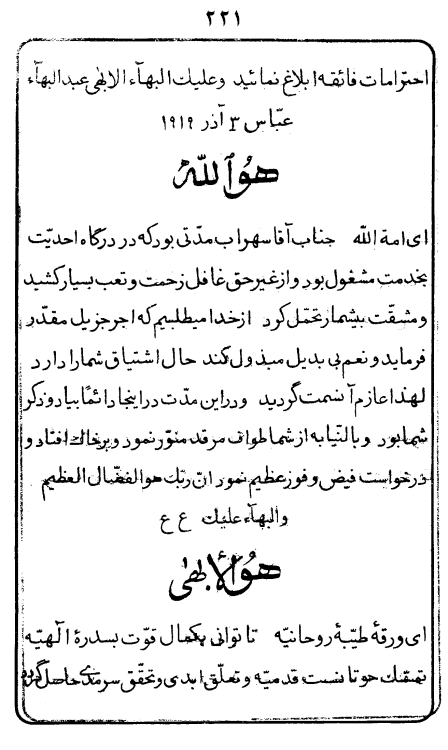 ۲۲۱
احترامات فائقه ابلاغ نمائید وعلیك البهآء الابهی عبدالبهآء
عبّاس ۳ آذر ۱۹۱۹
هُوالله
ای امة الله جناب آقا سهراب مدّتی بود که در درگاه احدیّت
بخدمت مشغول بود و از غیر حق غافل زحمت و تعب بسیار کشید
و مشقّت بیشمار تحمّل کرد از خدا میطلبیم که اجر جزیل مقدّر
فرماید و نعم بی بدیل مبذول کند حال اشتیاق شما را دارد
لهذا عازم آنسمت گردید و در این مدّت در اینجا دائمًا بیاد و ذکر
شما بود و بالنّیابه از شما طواف مرقد منوّر نمود و بر خاك افتاد و
درخواست فیض و فوز عظیم نمود انّ ربّك هو الفضّال العظیم
والبهآء علیك ع ع
هُوالأبهی
ای ورقهٔ طیّبهٔ روحانیّه تا توانی بکمال قوّت بسدرهٔ الهیّه
تمسّك جو تا نسبت قدمیّه و تعلّق ابدی و تحقّق سرمدی حاصل گردد